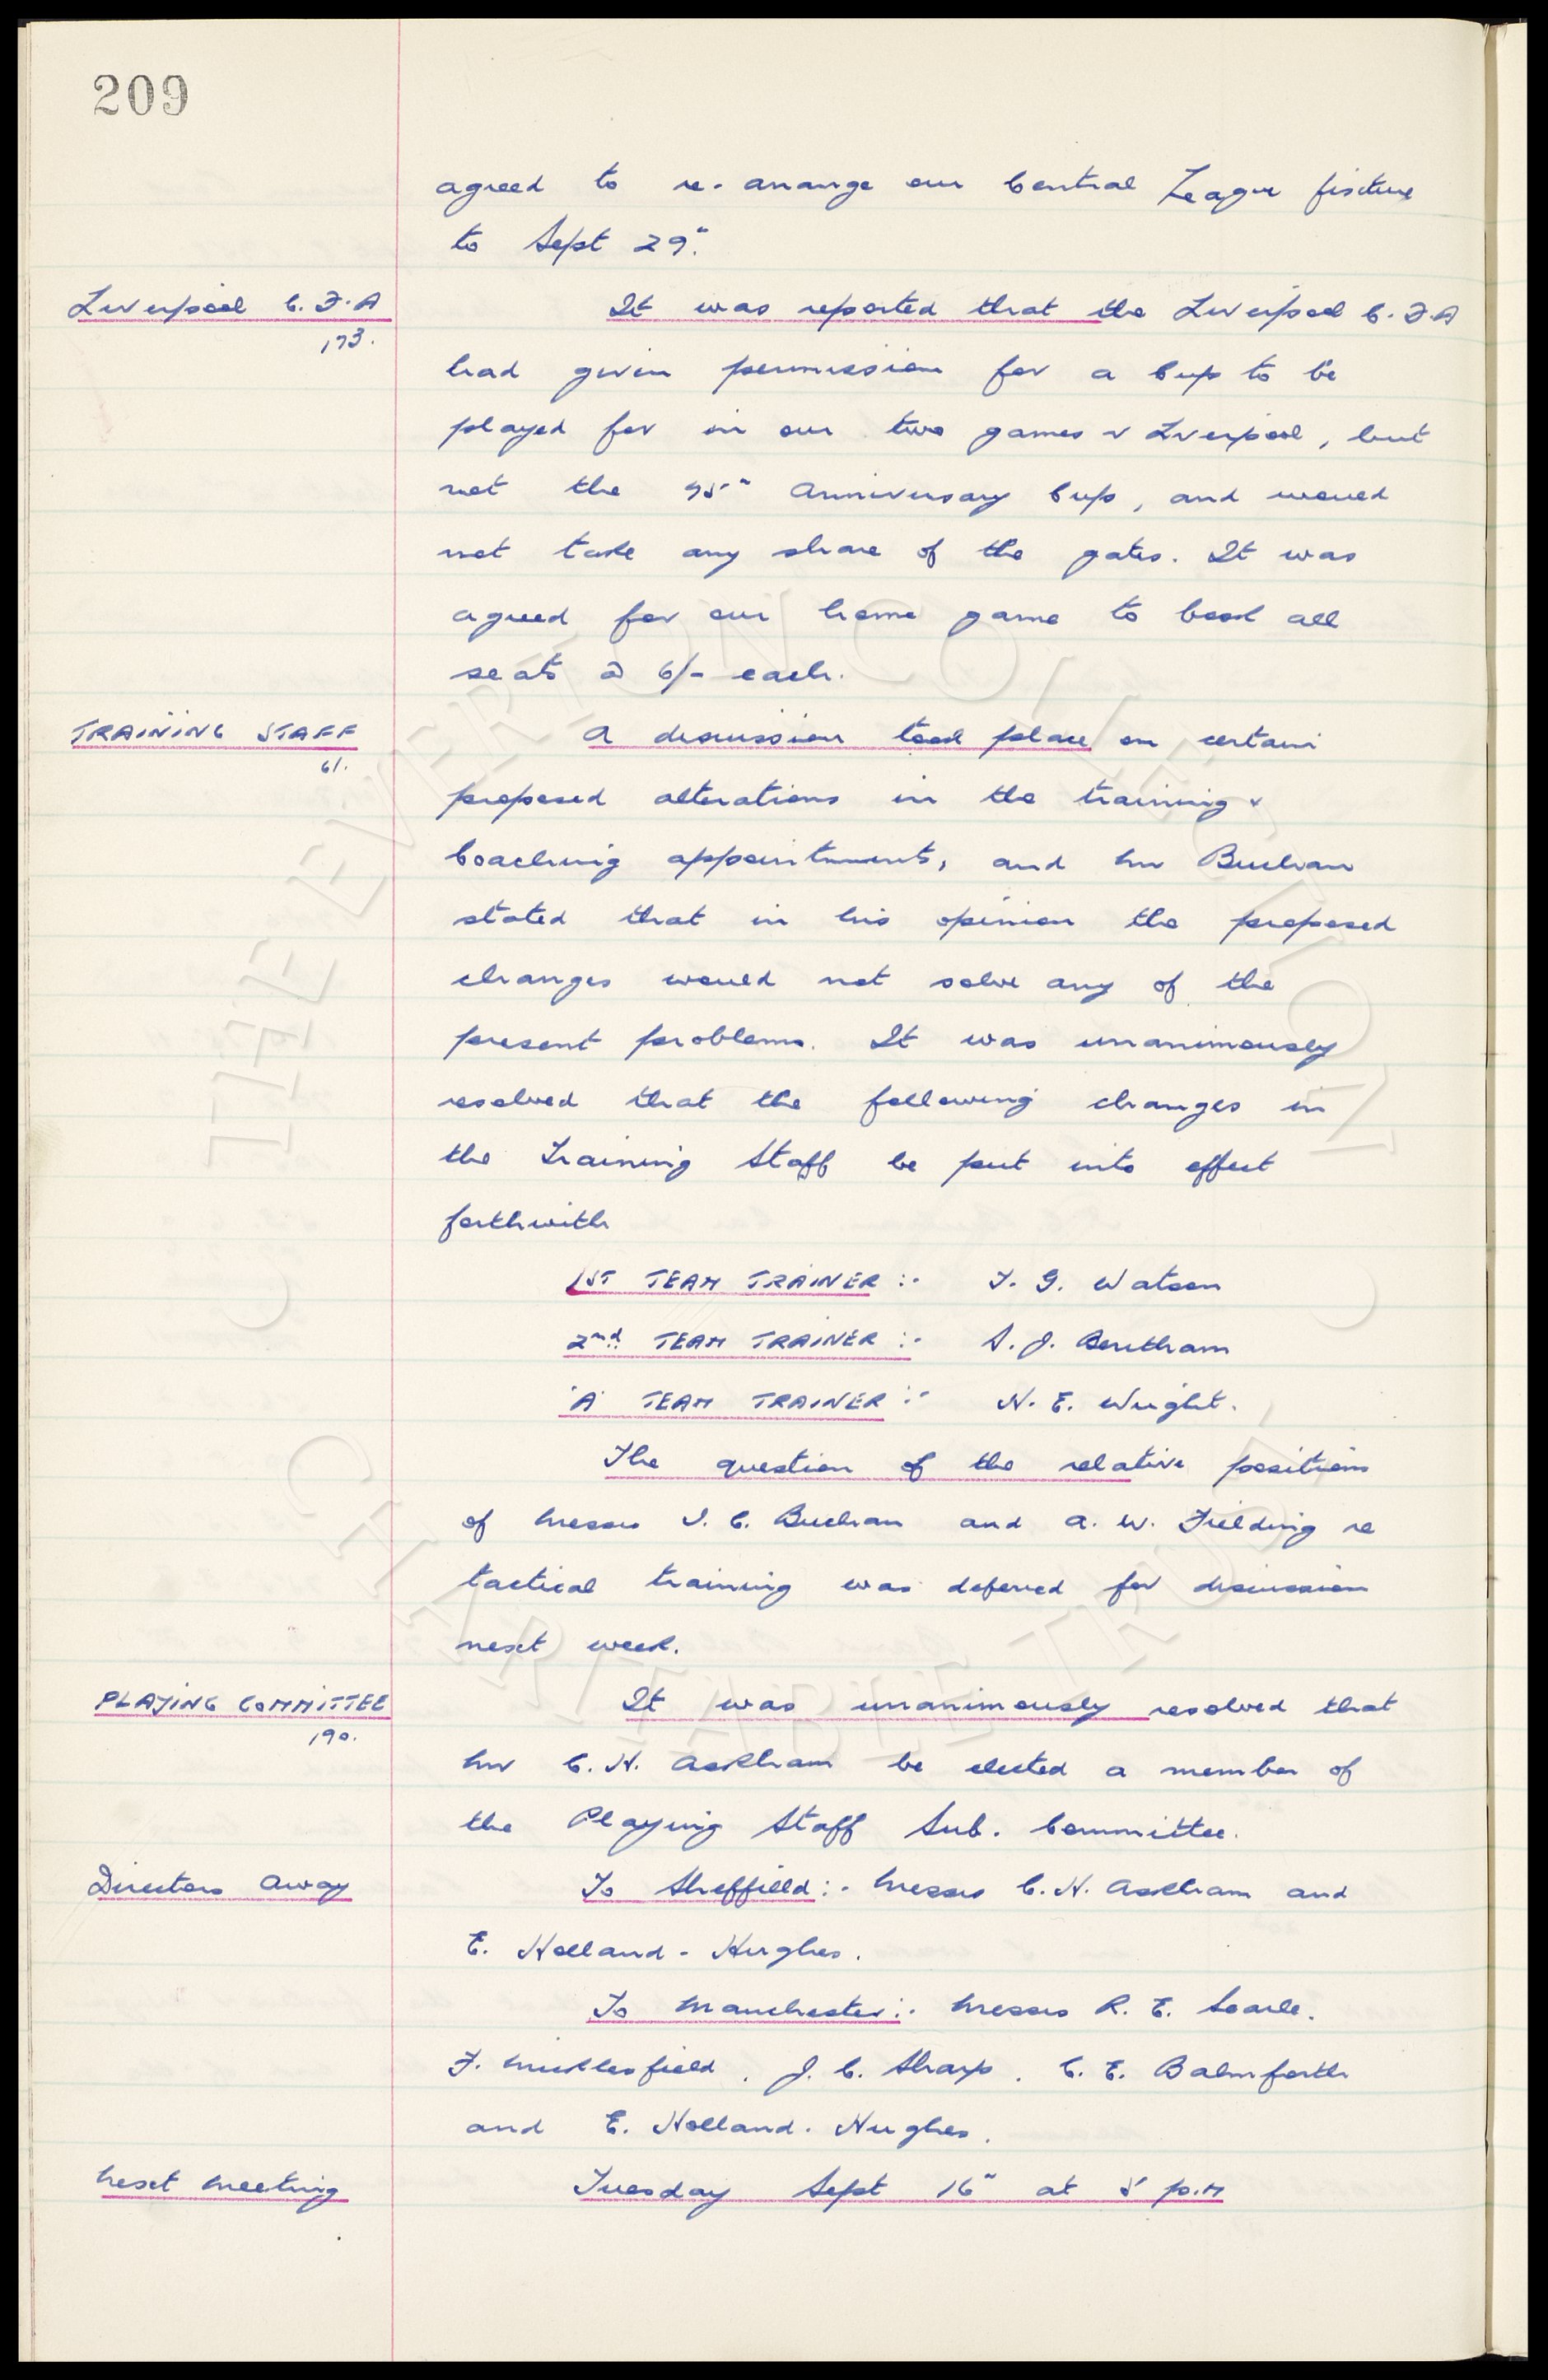 209
agreed to re-arrange our Central League fixture
to Sept 29".
Liverpool C.F.A
173.
It was reported that the Liverpool C.F.A
had given permission for a Cup to be
played for in our two games v Liverpool, but
not the 75" Anniversary Cup, and would
not take any share of the gates. It was
agreed for our home game to book all
seats @ 6/- each.
TRAINING STAFF
61.
A discussion took place on certain
proposed alterations in the training &
Coaching appointments, and Mr Buchan
stated that in his opinion the proposed
changes would not solve any of the
present problems. It was unanimously
resolved that the following changes in
the Training Staff be put into effect
forthwith
1ST TEAM TRAINER :- T. G. Watson
2nd TEAM TRAINER :- S. J. Bentham
'A' TEAM TRAINER :- H. E. Wright.
The question of the relative positions
of Messrs I. C. Buchan and A. W. Fielding re
tactical training was deferred for discussion
next week.
PLAYING COMMITTEE
190.
It was unanimously resolved that
Mr C. H. Askham be elected a member of
the Playing Staff Sub. Committee.
Directors Away
To Sheffield :- Messrs C. H. Askham and
E. Holland - Hughes.
To Manchester :- Messrs R. E. Searle.
F. Micklesfield, J. C. Sharp, C. E. Balmforth
and E. Holland. Hughes.
Next Meeting
Tuesday Sept 16" at 5 p.m
THE EVERTON COLLECTION
CHARITABLE TRUST